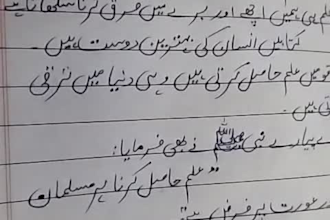 علم ہی ہمیں اچھے اور برے میں فرق کرنا سکھاتا ہے
کتابیں انسان کی بہترین دوست ہیں۔
قومیں علم حاصل کرتی ہیں وہی دنیا میں ترقی
تی ہیں۔
پیارے نبی ﷺ نے بھی فرمایا:
"علم حاصل کرنا ہر مسلمان
عورت پر فرض ہے"